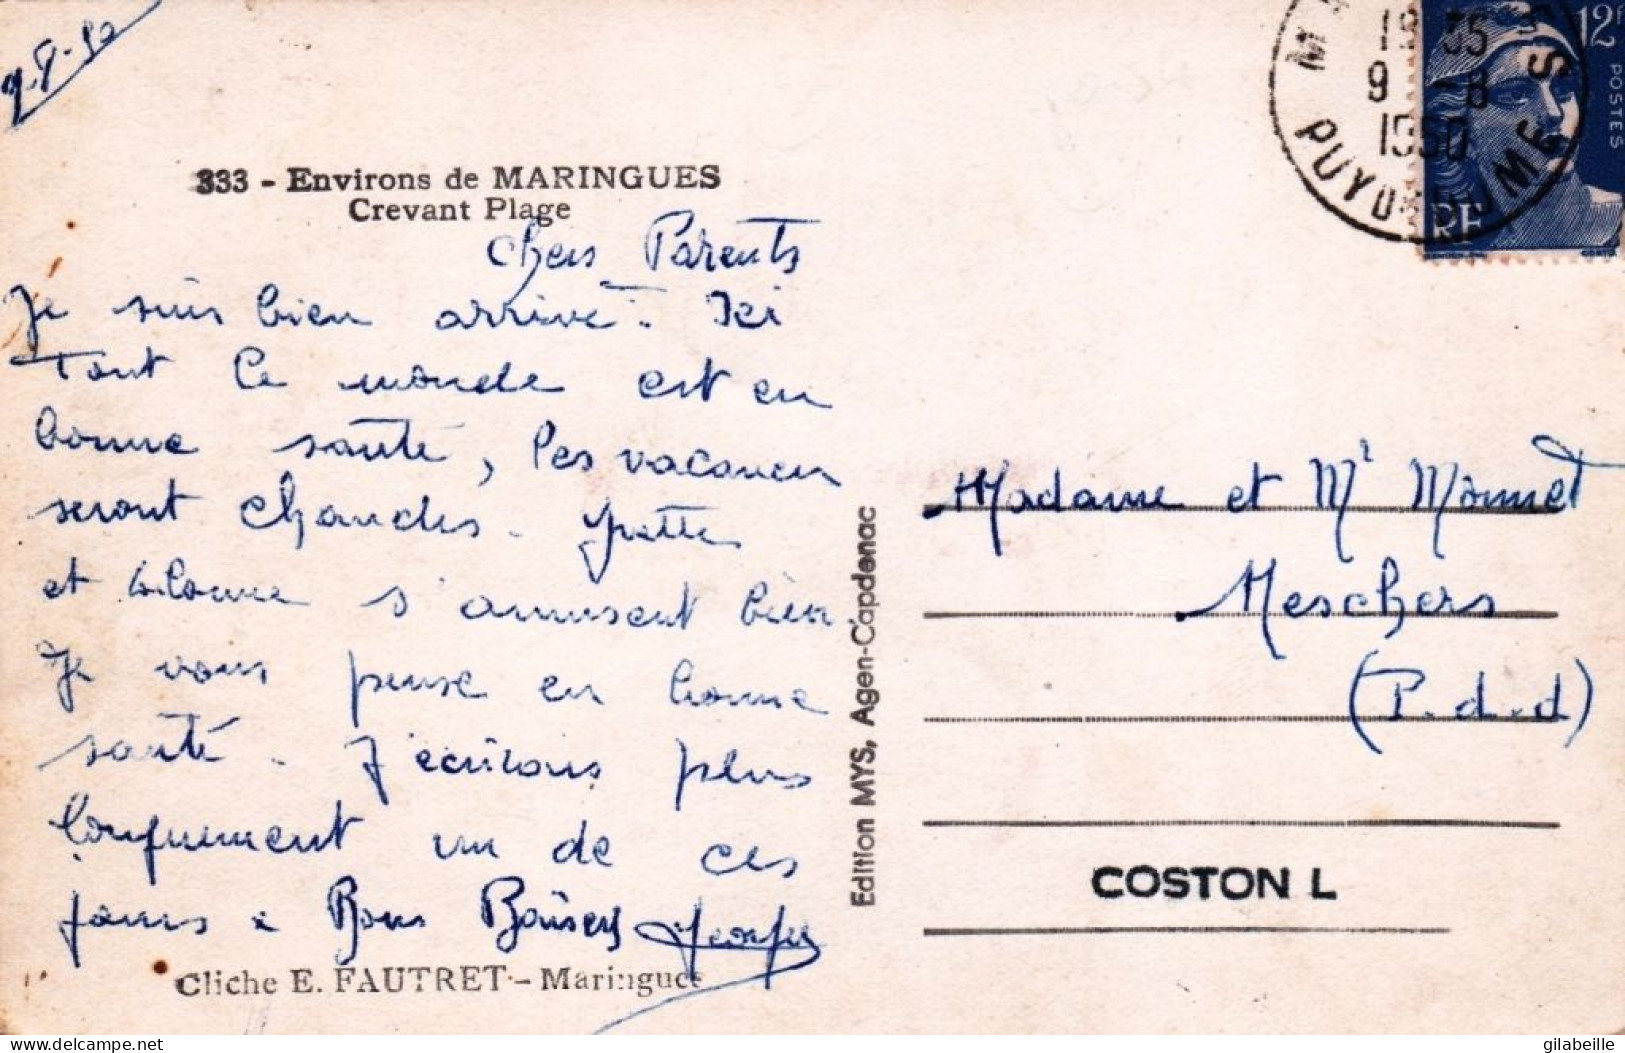 9-8-50
333 - Environs de MARINGUES
Crevant Plage
Chers Parents
Je suis bien arrivé. Ici
Tout le monde est en
bonne santé, les vacances
seront chaudes. Yvette
et s'amusent bien
Je vous pense en bonne
santé. J'écrirons plus
longuement un de ces
jours. Bons Baisers
Cliche E. FAUTRET - Maringues
Edition MYS, Agen-Capdenac
12f
POSTES
RF
19 35
9 -8
1950
PUY DE DOME
Madame et Mr Monnet
Meschers
(P.d.d)
COSTON L
delcampe.net
gilabeille